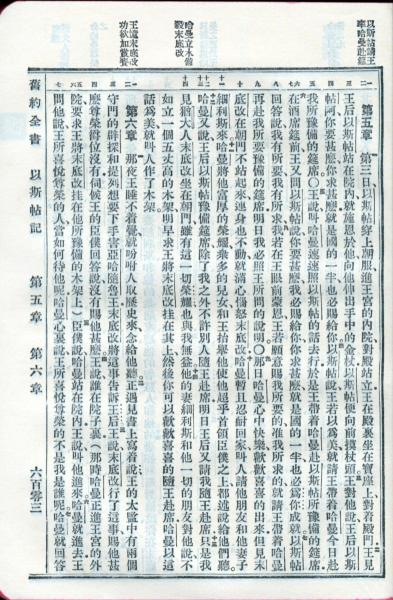 以斯帖請王
率哈曼赴筵
哈曼立木備
殺末底改
王追末底改
功欲加賞賚
第五章 第三日以斯帖穿上朝服進王宮的內院對殿站立王在殿裏坐在寶座上對着殿門王見
王后以斯帖站在院內就施恩於他向他伸出手中的金杖以斯帖便向前摸杖頭王對他說王后以斯
帖阿你要甚麼你求甚麼就是國的一半也必賜給你以斯帖說王若以爲美就請王帶着哈曼今日赴
我所豫備的筵席○王說叫哈曼速速照以斯帖的話去行於是王帶着哈曼赴以斯帖所豫備的筵席
在酒席筵前王又問以斯帖說你要甚麼我必賜給你你求甚麼就是國的一半也必爲你成就以斯帖
回答說我有所要我有所求我若在王眼前蒙恩王若願意賜我所要的准我所求的就請王帶着哈曼
再赴我所要豫備的筵席明日我必照王所問的說明○那日哈曼心中快樂歡歡喜喜的出來但見末
底改在朝門不站起來連身也不動就滿心惱怒末底改哈曼暫且忍耐回家叫人請他朋友和他妻子
細利斯來哈曼將他富厚的榮耀衆多的兒女和王抬舉他使他超乎首領臣僕之上都述說給他們聽
哈曼又說王后以斯帖豫備筵席除了我之外不許別人隨王赴席明日王后又請我隨王赴席只是我
見猶大人末底改坐在朝門雖有這一切榮耀也與我無益他的妻細利斯和他一切的朋友對他說不
如立一個五丈高的木架明早求王將末底改挂在其上然後你可以歡歡喜喜的隨王赴席哈曼以這
話爲美就叫人作了木架
第六章 那夜王睡不着覺就吩咐人取歷史來念給他聽正遇見書上寫着說王的太監中有兩個
守門的辟探和提列想要下手害亞哈隨魯王末底改將這事告訴王后王說末底改行了這事賜他甚
麼尊榮爵位沒有伺候王的臣僕回答說沒有賜他甚麼王說誰在院子裏（那時哈曼正進王宮的外
院要求王將末底改挂在他所豫備的木架上）臣僕說哈曼站在院內王說叫他進來哈曼就進去王
問他說王所喜悅尊榮的人當如何待他呢哈曼心裏說王所喜悅尊榮的不是我是誰呢哈曼就回答
舊約全書 以斯帖記 第五章 第六章 六百零三